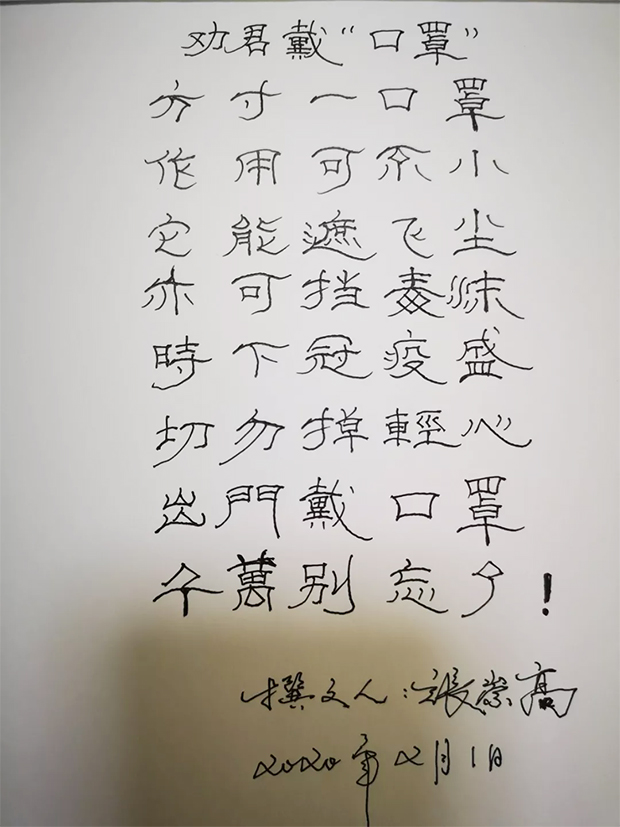 劝君戴“口罩”
方寸一口罩
作用可不小
它能遮飞尘
亦可挡毒沫
時下冠疫盛
切勿掉輕心
出門戴口罩
千萬别忘了！
撰文人：張崇高
2020年2月1日